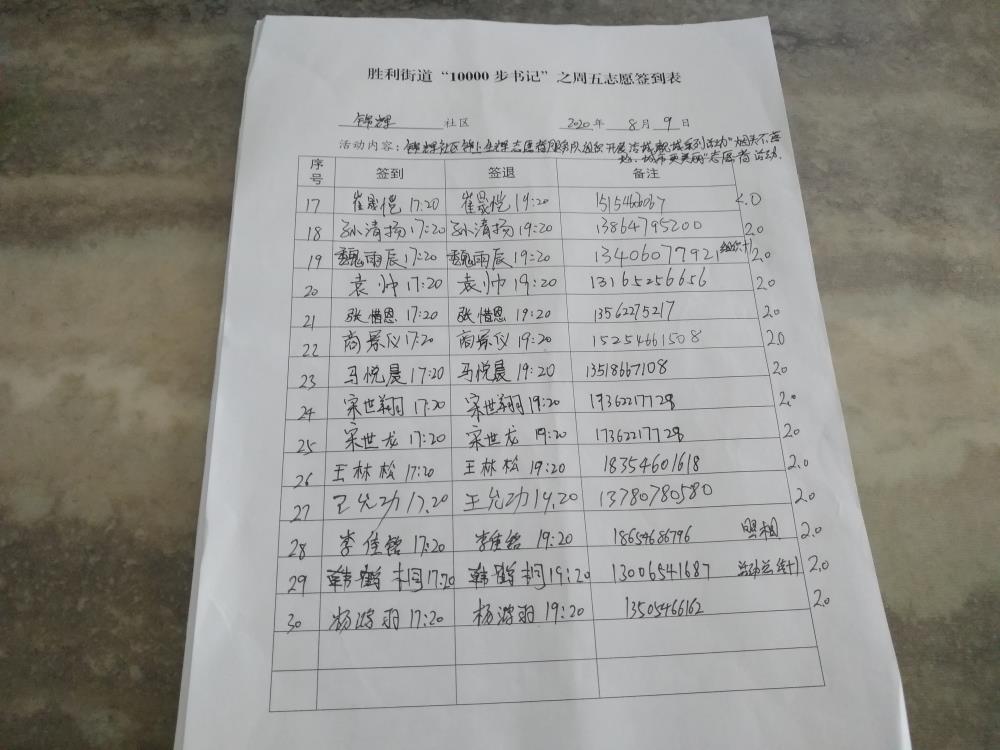 胜利街道“10000 步书记”之周五志愿签到表
锦辉 社区 2020 年 8 月 9 日
活动内容：锦辉社区 志愿者服务队组织开展 系列活动“烟头不落
地，城市更美丽”志愿者活动.
序号 签到 签退 备注
17 崔晟恺 17:20 崔晟恺 19:20 2.0
18 孙清扬 17:20 孙清扬 19:20 13864795200 2.0
19 魏雨辰 17:20 魏雨辰 19:20 13406077921 2.0
20 袁帅 17:20 袁帅 19:20 13165256656 2.0
21 张惜恩 17:20 张惜恩 19:20 13562275217 2.0
22 商景仪 17:20 商景仪 19:20 15254661508 20
23 马悦晨 17:20 马悦晨 19:20 13518667108 20
24 宋世翔 17:20 宋世翔 19:20 17362217728 2.0
25 宋世龙 17:20 宋世龙 19:20 17362217728 20
26 王林松 17:20 王林松 19:20 18354601618 2.0
27 王允功 17.20 王允功 19.20 13780780580 2.0
28 李佳铭 17:20 李佳铭 19:20 18654686796 照相 2.0
29 韩鹤桐 17:20 韩鹤桐 19:20 13006541687 2.0
30 杨 羽 17:20 杨 羽 19:20 13505466162 2.0